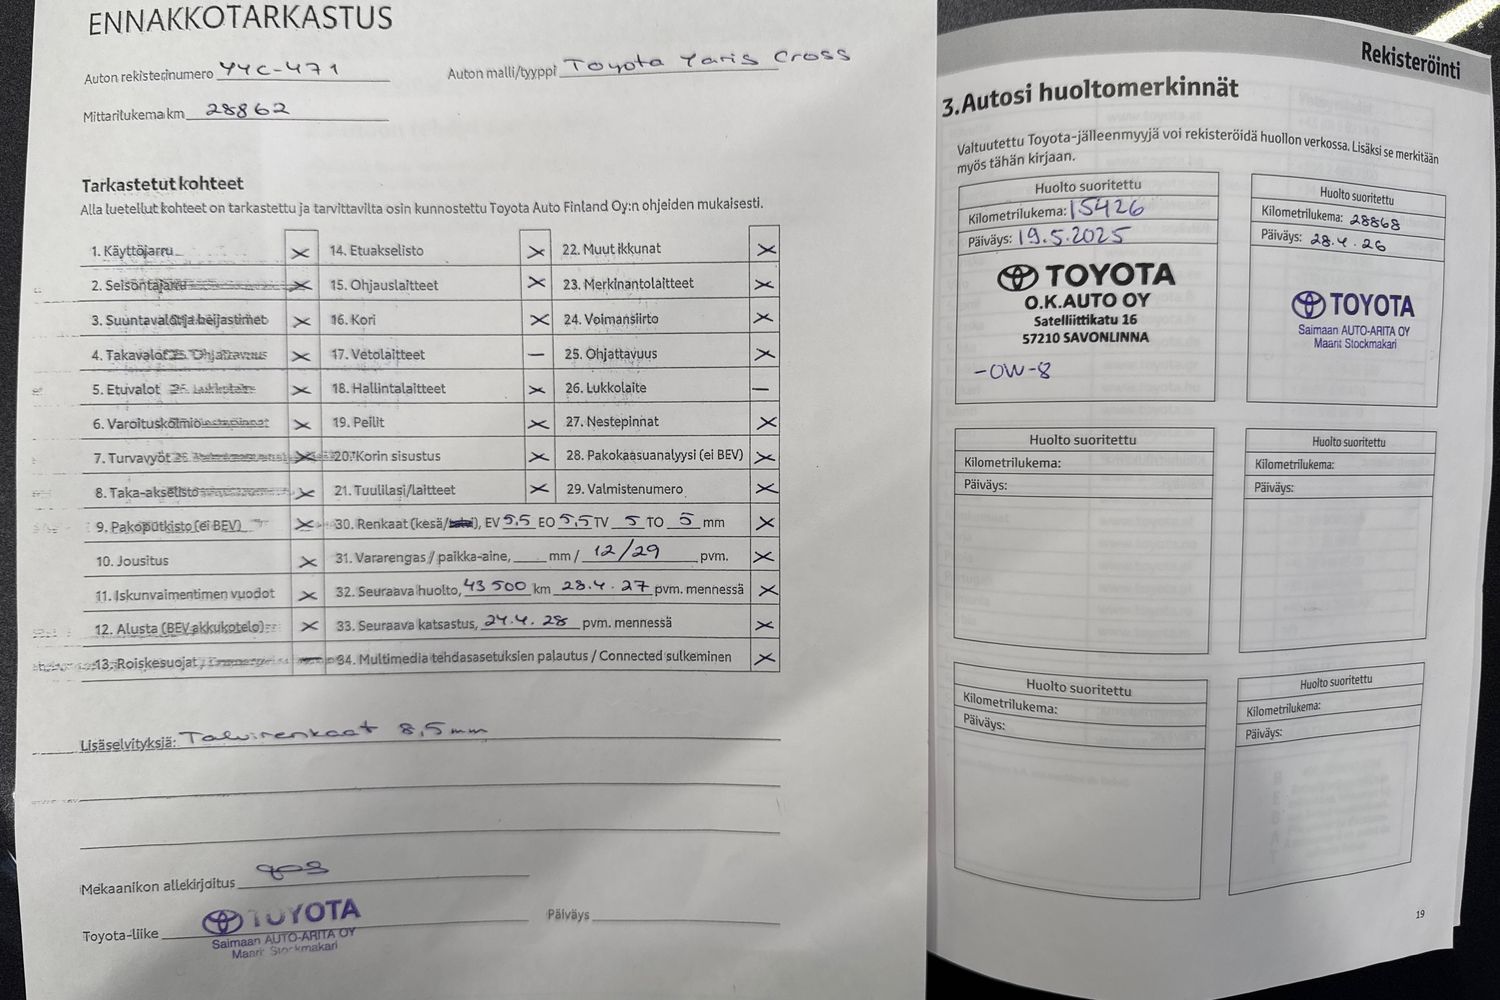 ENNAKKOTARKASTUS
Auton rekisterinumero YYC-471
Auton malli/tyyppi Toyota Yaris Cross
Mittarilukema km 28862
Tarkastetut kohteet
Alla luetellut kohteet on tarkastettu ja tarvittavilta osin kunnostettu Toyota Auto Finland Oy:n ohjeiden mukaisesti.
1. Käyttöjarru ×
2. Seisontajarru ×
3. Suuntavalot ja heijastimet ×
4. Takavalot ×
5. Etuvalot ×
6. Varoituskolmio ×
7. Turvavyöt ×
8. Taka-akselisto ×
9. Pakoputkisto (ei BEV) ×
10. Jousitus ×
11. Iskunvaimentimen vuodot ×
12. Alusta (BEV akkukotelo) ×
13. Roiskesuojat —
14. Etuakselisto ×
15. Ohjauslaitteet ×
16. Kori ×
17. Vetolaitteet —
18. Hallintalaitteet ×
19. Peilit ×
20. Korin sisustus ×
21. Tuulilasi/laitteet ×
22. Muut ikkunat ×
23. Merkinantolaitteet ×
24. Voimansiirto ×
25. Ohjattavuus ×
26. Lukkolaite —
27. Nestepinnat ×
28. Pakokaasuanalyysi (ei BEV) ×
29. Valmistenumero ×
30. Renkaat (kesä/talvi), EV 5,5 EO 5,5 TV 5 TO 5 mm ×
31. Vararengas / paikka-aine, mm / 12/29 pvm. ×
32. Seuraava huolto, 43 500 km 28.4.27 pvm. mennessä ×
33. Seuraava katsastus, 24.4.28 pvm. mennessä ×
34. Multimedia tehdasasetuksien palautus / Connected sulkeminen ×
Lisäselvityksiä: Talvirenkaat 8,5mm
Mekaanikon allekirjoitus
Toyota-liike TOYOTA
Saimaan AUTO-ARITA OY
Maarit Stockmakari
Päiväys
Rekisteröinti
3.Autosi huoltomerkinnät
Valtuutettu Toyota-jälleenmyyjä voi rekisteröidä huollon verkossa. Lisäksi se merkitään
myös tähän kirjaan.
Huolto suoritettu
Kilometrilukema: 15426
Päiväys: 19.5.2025
TOYOTA
O.K.AUTO OY
Satelliittikatu 16
57210 SAVONLINNA
-0W-8
Huolto suoritettu
Kilometrilukema: 28868
Päiväys: 28.4.26
TOYOTA
Saimaan AUTO-ARITA OY
Maarit Stockmakari
Huolto suoritettu
Kilometrilukema:
Päiväys:
Huolto suoritettu
Kilometrilukema:
Päiväys:
Huolto suoritettu
Kilometrilukema:
Päiväys:
Huolto suoritettu
Kilometrilukema:
Päiväys:
19